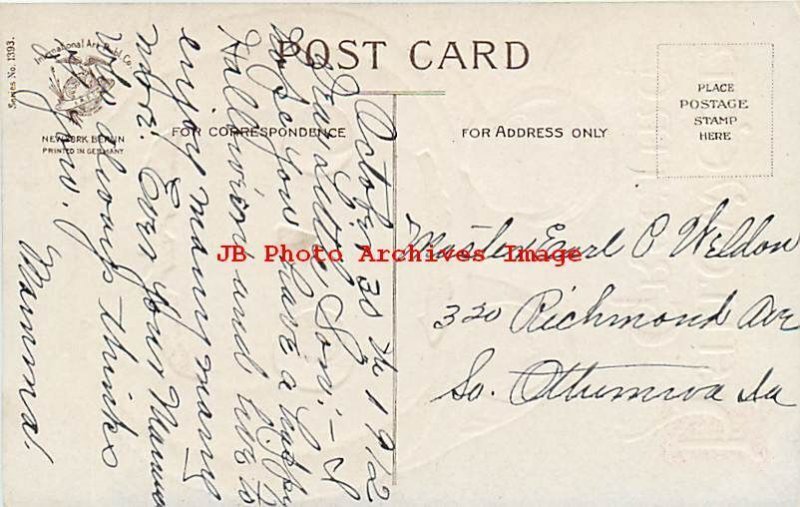 Series No. 1393.
International Art Publ. Co.
NEW YORK BERLIN
PRINTED IN GERMANY
POST CARD
FOR CORRESPONDENCE
FOR ADDRESS ONLY
PLACE
POSTAGE
STAMP
HERE
October 30th 1912
Dear Little Son:— I
hope you have a happy
Hallowien and live to
enjoy many many
more. Ever your Mamma
Who always thinks
of you.
Mamma.
Master Earl P Weldon
320 Richmond Ave
So. Ottumwa Ia
JB Photo Archives Image